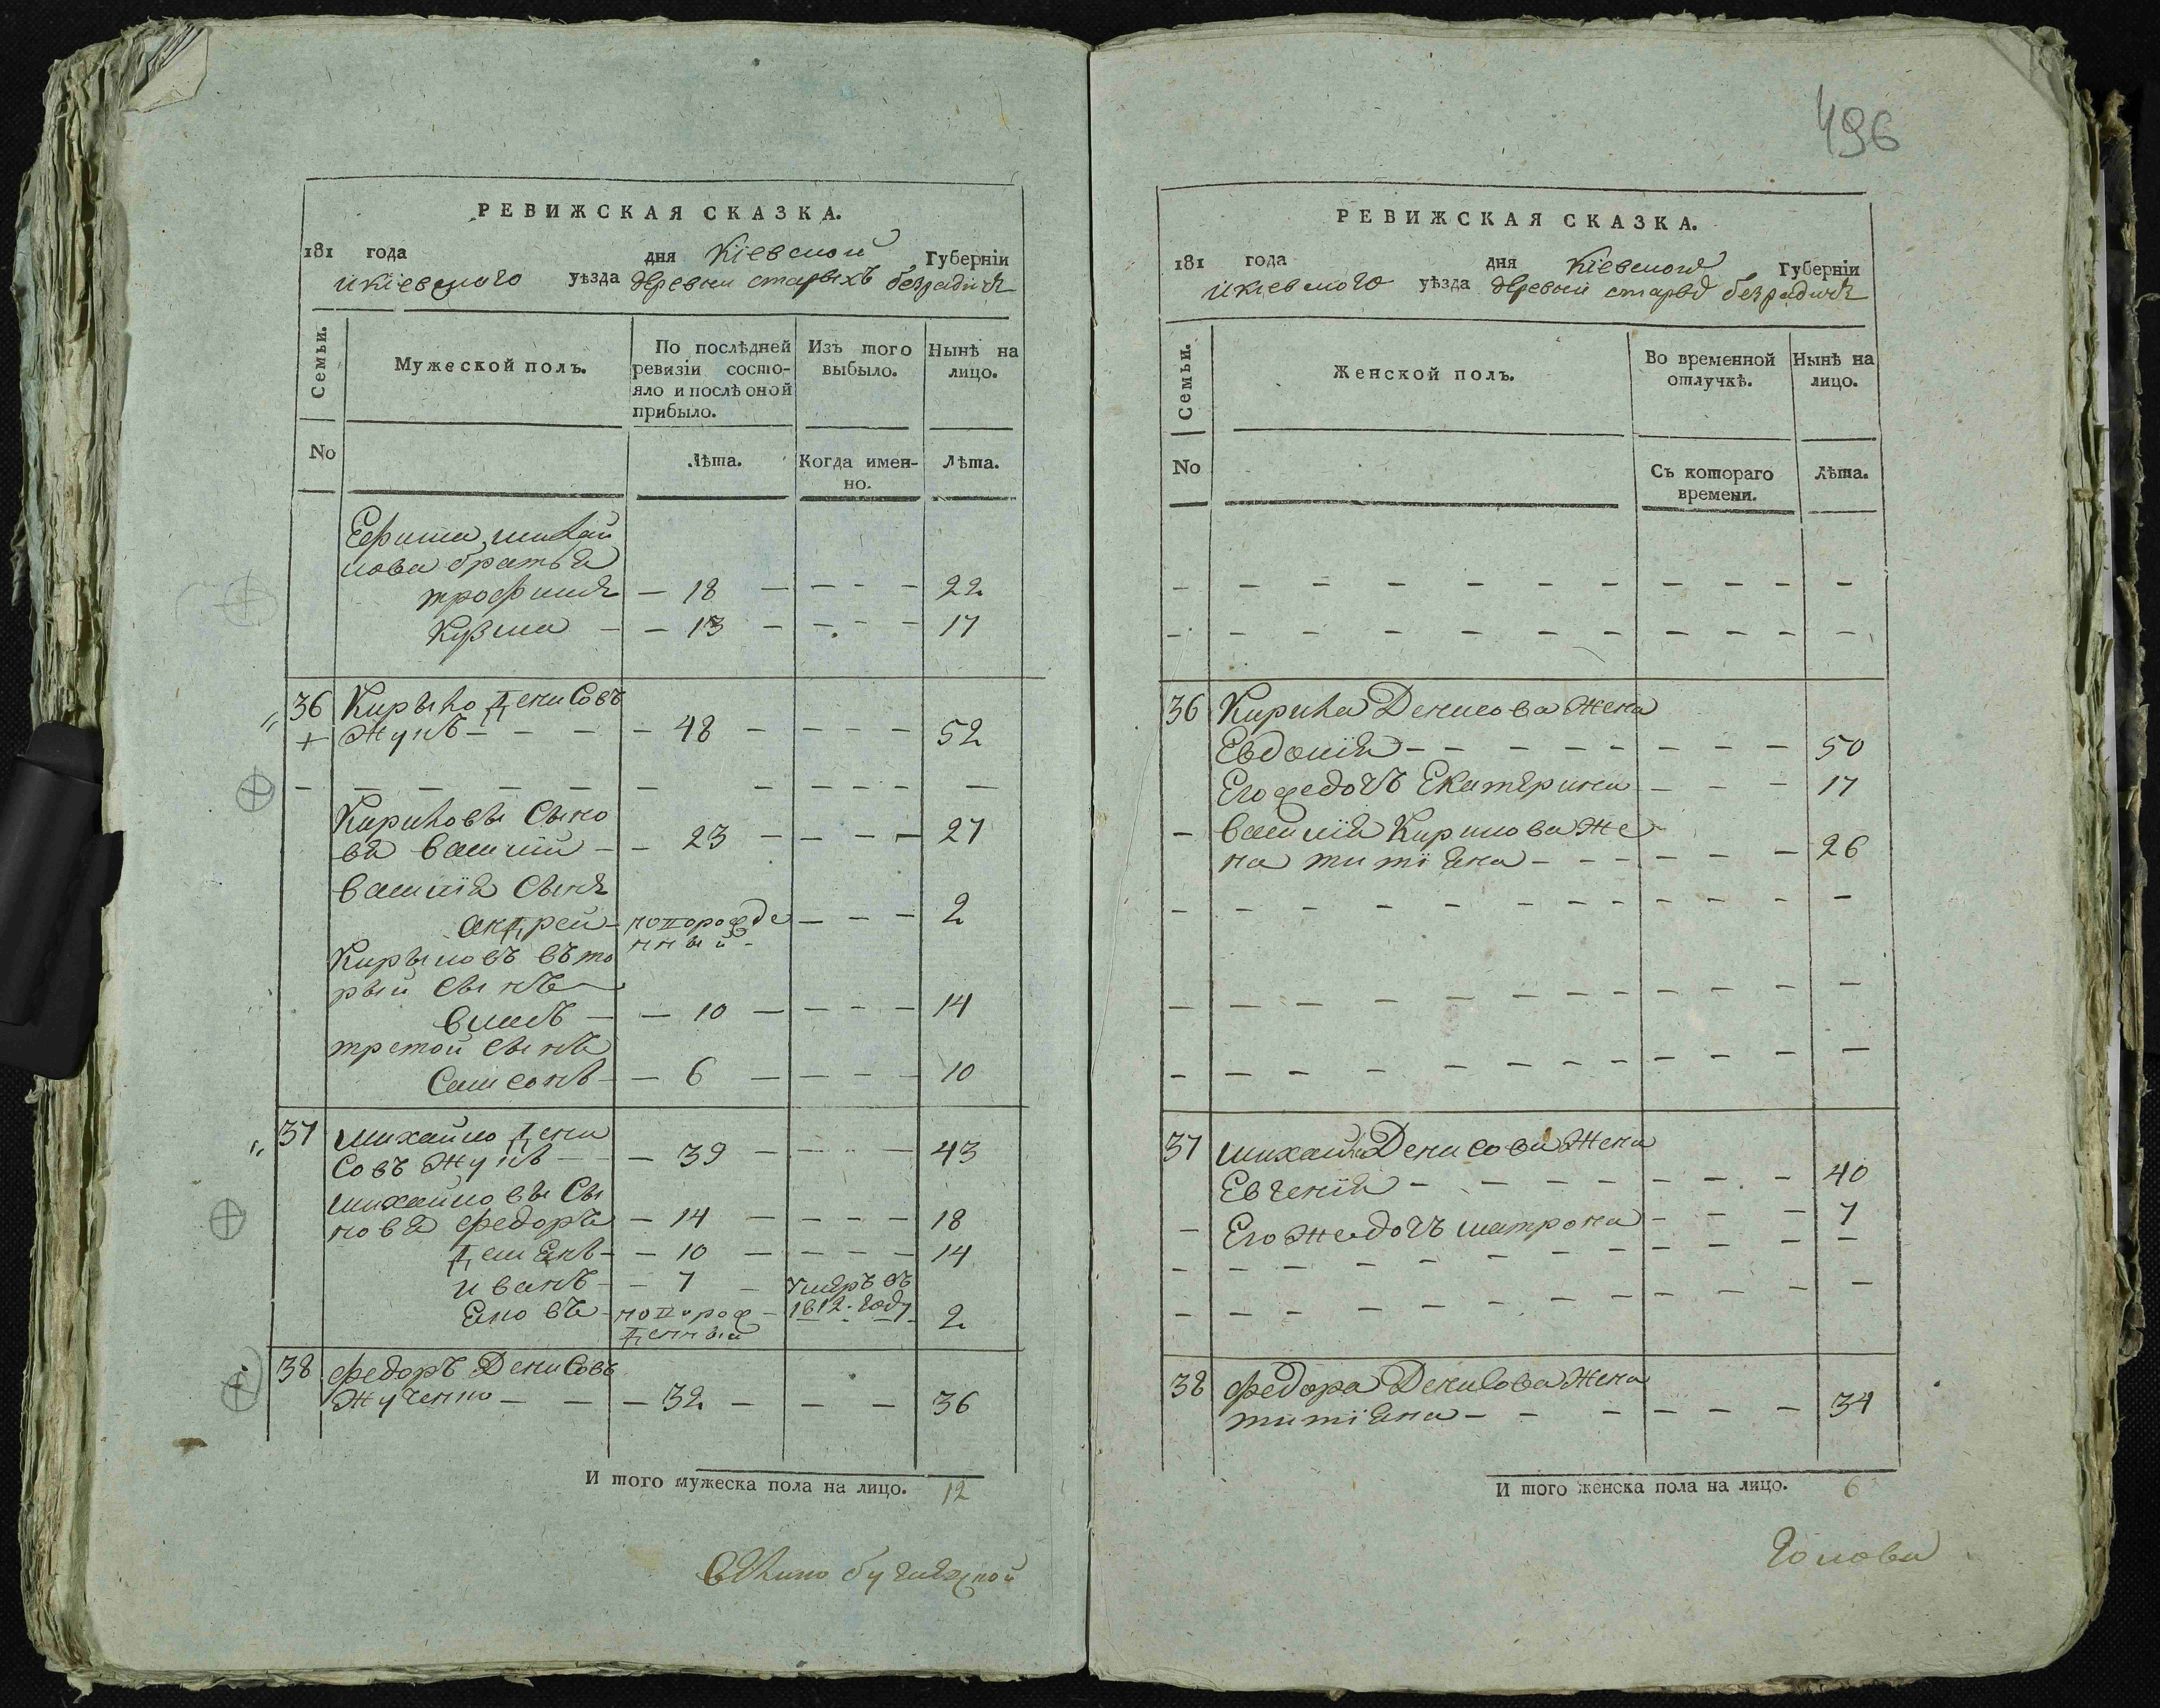 РЕВИЖСКАЯ СКАЗКА.
181 года дня Кіевской Губерніи
икіевского уѣзда деревни старыхъ безрадичь
Семьи.
Мужеской полъ.
По послѣдней ревизіи состояло и послѣ оной прибыло.
Изъ того выбыло.
Нынѣ на лицо.
No
Лѣта.
Когда именно.
Лѣта.
Ефима михай
лова братья
трофимъ – 18 – – – – 22
Кузма – – 13 – – – – 17
36 Кирыло Денисовъ
Жукъ – – – – 48 – – – – 52
Кириловы Сыно
вя василий – – 23 – – – – 27
василія Сынъ
андрей – новорожде – – – 2
нный –
Кирыловъ въто
рый Сынъ
власъ – – 10 – – – – 14
третой Сынъ
Самсонъ – – 6 – – – – 10
37 михайло Дени
Совъ Жукъ – – 39 – – – – 43
михайловы Сы
новя федоръ – 14 – – – – 18
Демянъ – – 10 – – – – 14
иванъ – – 7 – Умеръ въ
1812. году
новорож
денный 2
38 федоръ Денисовъ
Жученко – – – 32 – – – 36
И того мужеска пола на лицо. 12
496
РЕВИЖСКАЯ СКАЗКА.
181 года дня Кіевской Губерніи
икіевского уѣзда деревни старых безрадичь
Семьи.
Женской полъ.
Во временной отлучкѣ.
Нынѣ на лицо.
No
Съ котораго времени.
Лѣта.
36 Кирила Денисова Жена
Евдокія – – – – – – – – 50
Его же дочъ Екатерина – – – 17
– василія Кирилова Же
на титіяна – – – – – – – 26
37 михайла Денисова Жена
Евгенія – – – – – – – – – 40
– Его же дочъ матрона – – – 7
38 федора Денисова Жена
титіяна – – – – – – – 34
И того женска пола на лицо. 6
Голова